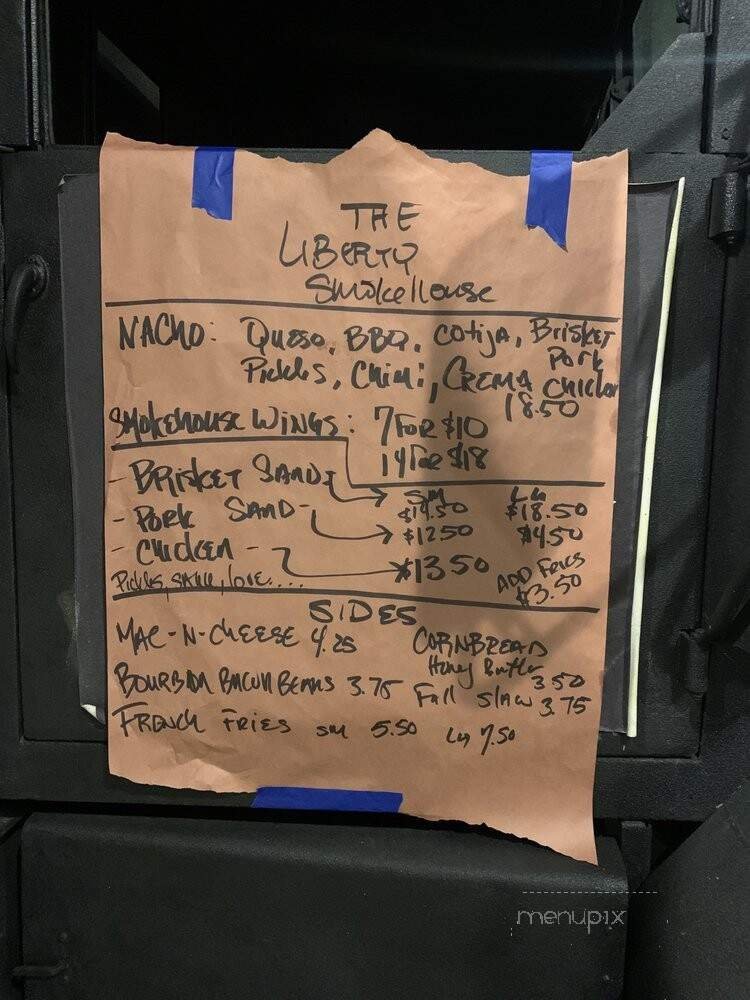 THE
LIBERTY
SmokeHouse
NACHO: Queso, BBQ, Cotija, Brisket
Pork
Pickles, Chimi, CREMA Chicken
18.50
SMOKEHOUSE WINGS: 7 FOR $10
14 FOR $18
- BRISKET SAND
SM LG
$14.50 $18.50
- PORK SAND - $12.50 $14.50
- Chicken - $13.50
ADD Fries
$3.50
Pickles, sauce, love....
SIDES
MAC-N-CHEESE 4.25 CORNBREAD
Honey Butter
3.50
BOURBON BACON BEANS 3.75 Fall Slaw 3.75
FRENCH FRIES SM 5.50 LG 7.50
menupix